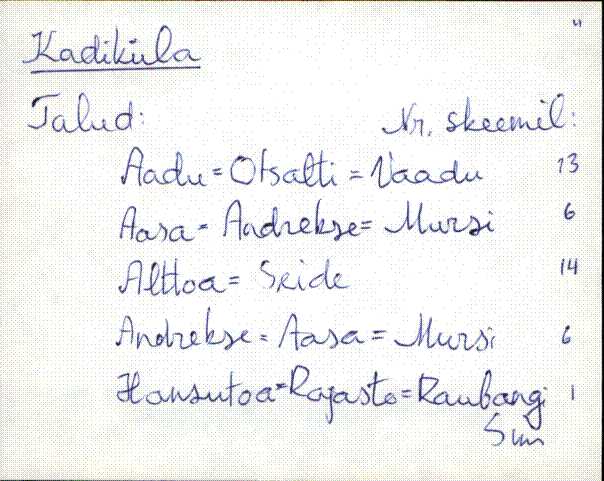 Kadiküla
Talud: Nr. skeemil:
Aadu = Otsatti = Vaadu 13
Aasa = Andrekse = Mursi 6
Alttoa = Seide 14
Andrekse = Aasa = Mursi 6
Hansutoa = Rajasto = Raubangi 1